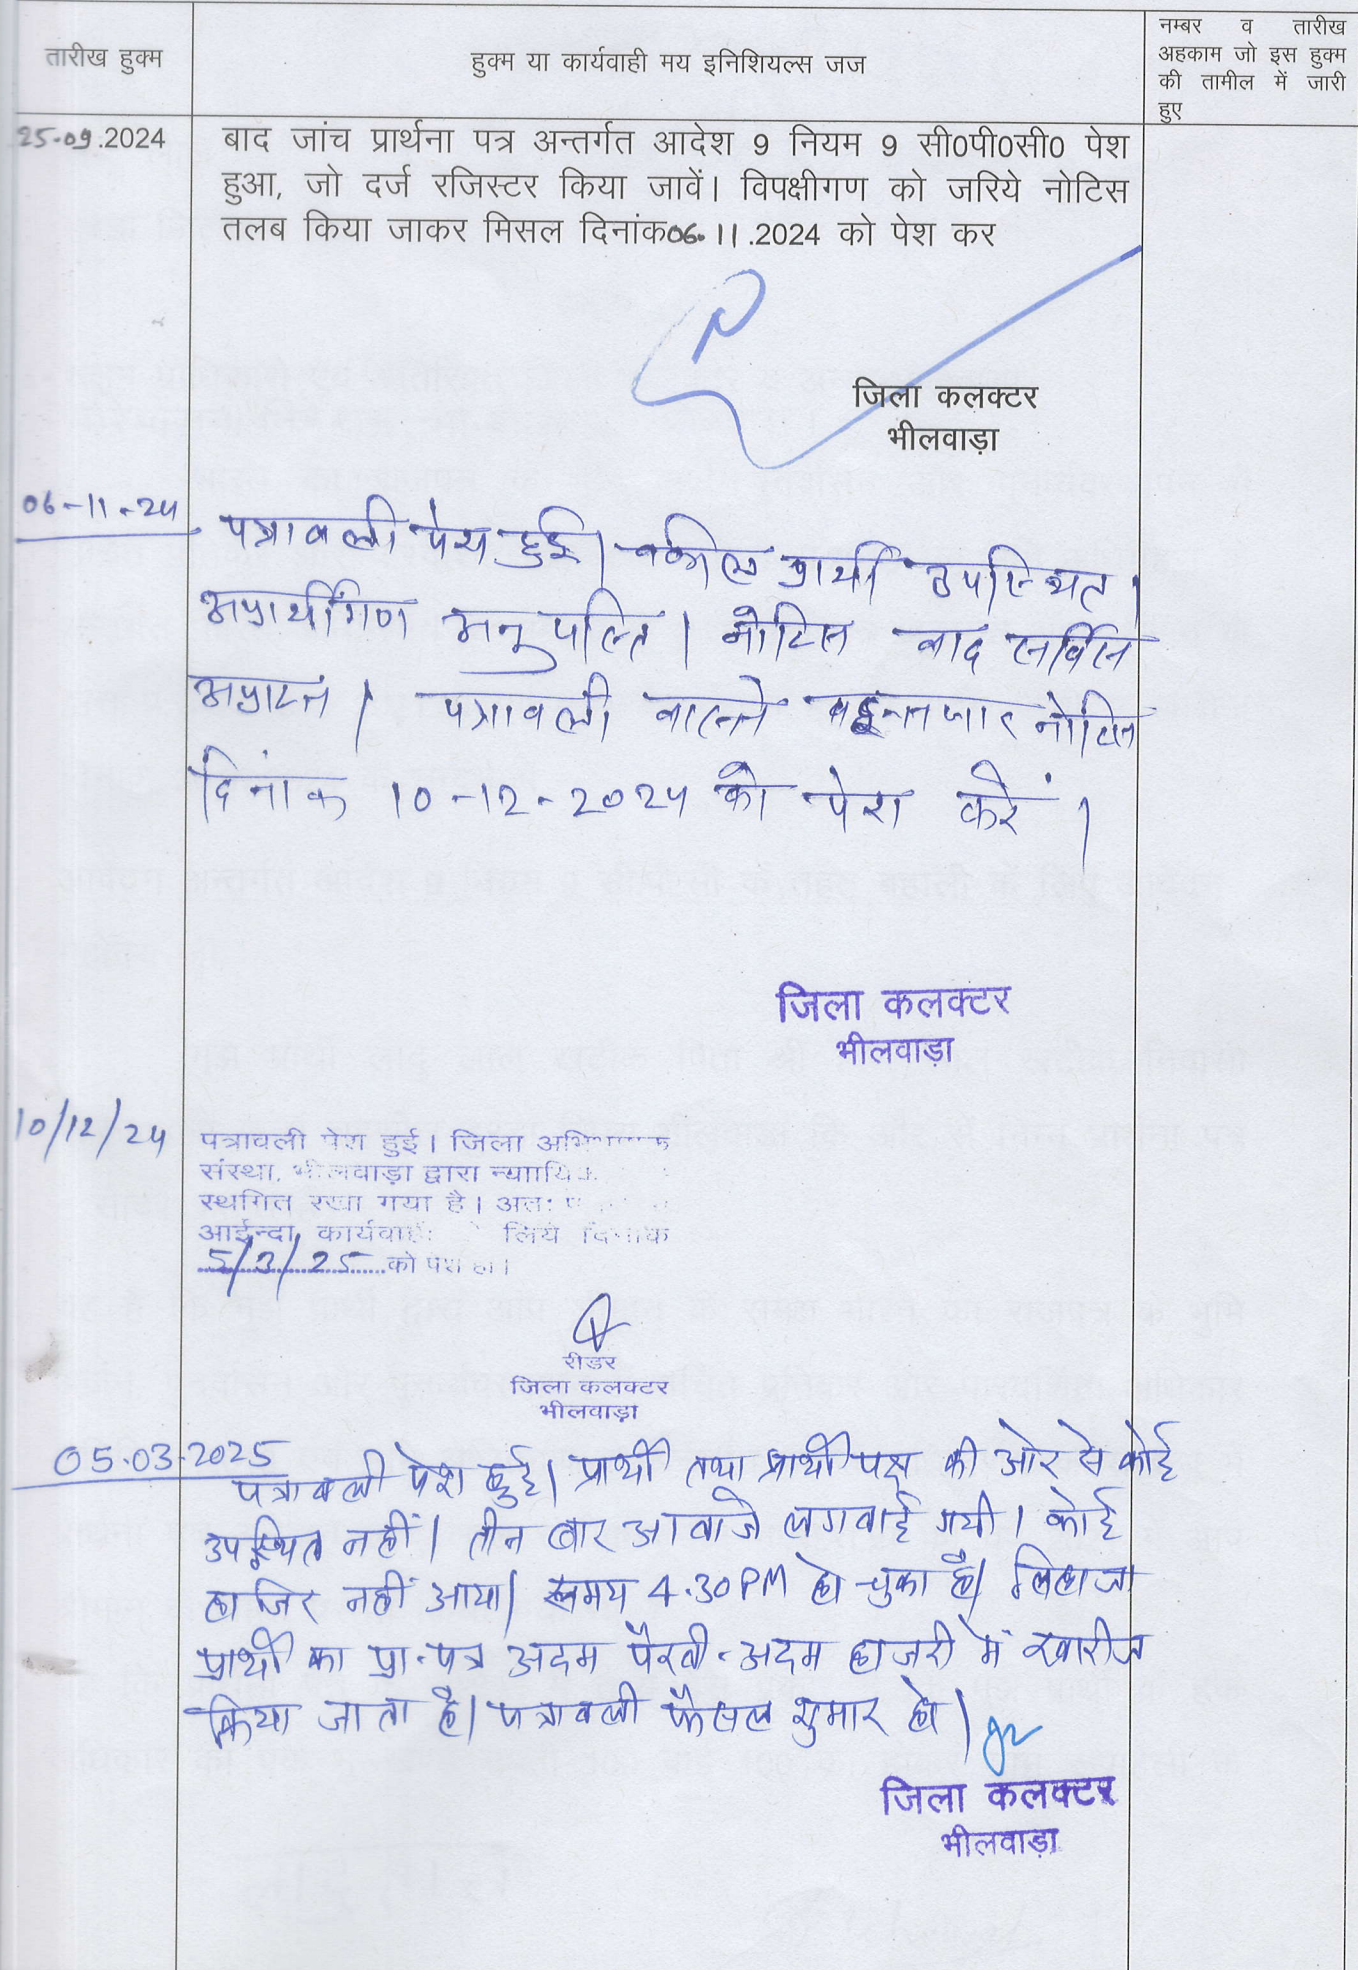 तारीख हुक्म
हुक्म या कार्यवाही मय इनिशियल्स जज
नम्बर व तारीख
अहकाम जो इस हुक्म
की तामील में जारी
हुए
25.09.2024
बाद जांच प्रार्थना पत्र अन्तर्गत आदेश 9 नियम 9 सी0पी0सी0 पेश
हुआ, जो दर्ज रजिस्टर किया जावें। विपक्षीगण को जरिये नोटिस
तलब किया जाकर मिसल दिनांक06.11.2024 को पेश कर
जिला कलक्टर
भीलवाड़ा
06-11-24
पत्रावली पेश हुई। वकील प्रार्थी उपस्थित।
अप्रार्थीगण अनुपस्ति। नोटिस बाद सर्विस
अप्राप्त। पत्रावली वास्ते इन्तजार नोटिस
दिनांक 10-12-2024 को पेश करें।
जिला कलक्टर
भीलवाड़ा
10/12/24
पत्रावली पेश हुई। जिला
संस्था, भीलवाड़ा द्वारा
स्थगित रखा गया है। अतः
आईन्दा लिये दिनांक
5/3/25 को पेश हो।
रीडर
जिला कलक्टर
भीलवाड़ा
05.03.2025
पत्रावली पेश हुई। प्रार्थी तथा प्रार्थी पक्ष की ओर से कोई
उपस्थित नहीं। तीन बार आवाजे लगवाई गयी। कोई
हाजिर नहीं आया। समय 4.30PM हो चुका है। लिहाजा
प्रार्थी का प्रा.पत्र अदम पैरवी-अदम हाजरी में खारीज
किया जाता है। पत्रावली फैसल शुमार हो।
जिला कलक्टर
भीलवाड़ा